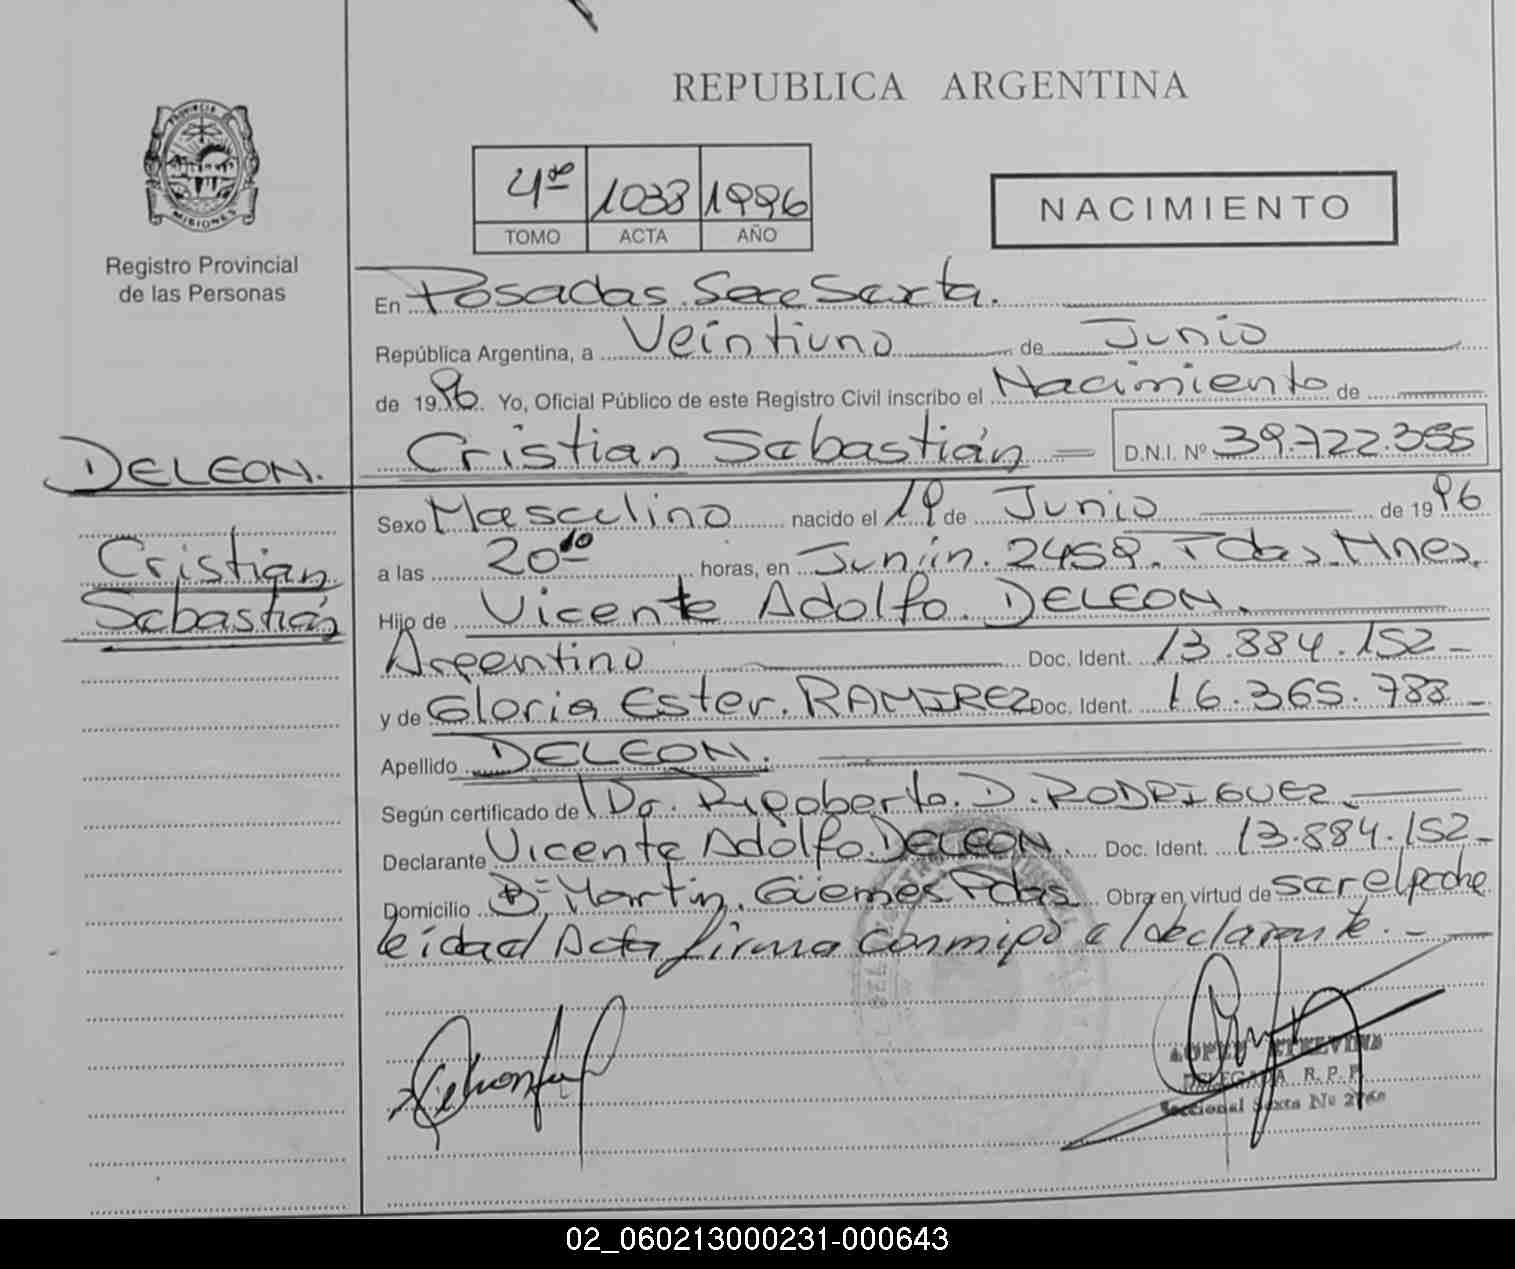 REPUBLICA ARGENTINA
PROVINCIA DE
MISIONES
Registro Provincial
de las Personas
4to 1038 1996
TOMO ACTA AÑO
NACIMIENTO
En Posadas. Secc Sexta.
República Argentina, a Veintiuno de Junio
de 1996 Yo, Oficial Público de este Registro Civil inscribo el Nacimiento de
DELEON. Cristian Sebastián D.N.I. Nº 39.722.355
Sexo Masculino nacido el 19 de Junio de 1996
Cristian
Sebastián
a las 20 horas, en Junín. 2459. Pdas. Mnes.
Hijo de Vicente Adolfo. DELEON.
Argentino Doc. Ident. 13.884.152-
y de Gloria Ester. RAMIREZ Doc. Ident. 16.365.788-
Apellido DELEON.
Según certificado de Dr. Rigoberto. D. RODRIGUEZ.
Declarante Vicente Adolfo. DELEON. Doc. Ident. 13.884.152-
Domicilio Bº Martin. Güemes Pdas Obra en virtud de ser el padre
leida el Acta firma conmigo el declarante. -
DELEGADA R. P. P.
Seccional Sexta Nº
02_060213000231-000643